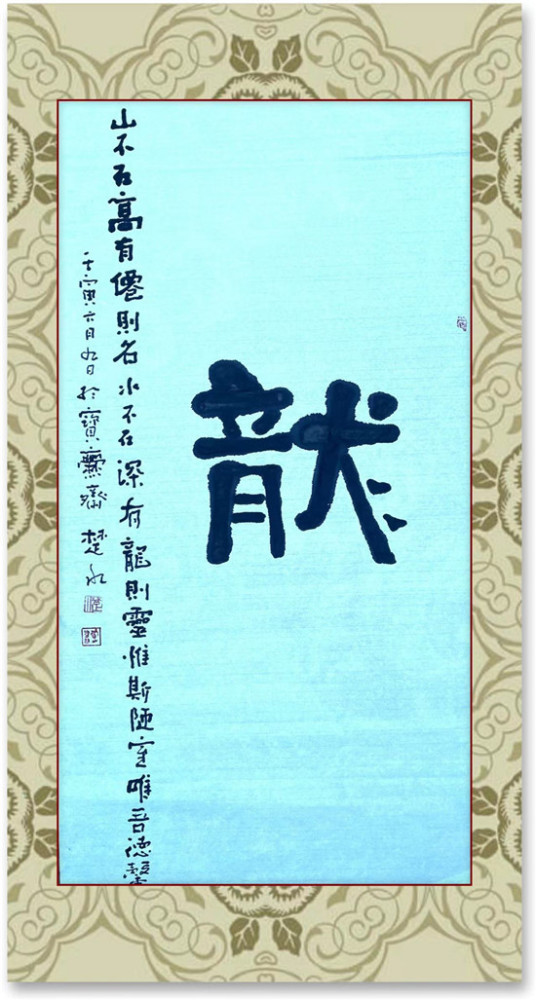 龍
山不在高有僊則名水不在深有龍則靈惟斯陋室唯吾德馨
壬寅六月九日於寶齋楚